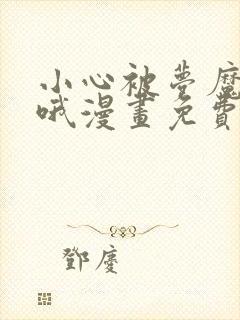 小心被夢魔
哦漫畫免費
鄧慶